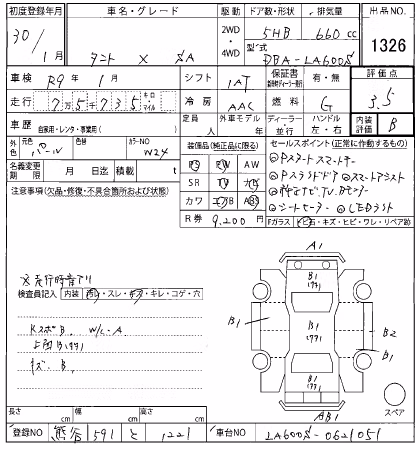 初度登録年月 車名・グレード 駆動 ドア数・形状 排気量 出品NO
30/1月 タント X SA 2WD・4WD 5HB 660cc 1326
型式 DBA-LA600S
車検 R9年1月 シフト IAT 保証書 有・無 評価点 3.5
走行 7万5千735キロ・マイル 冷房 AAC 燃料 G
車歴 自家用・レンタ・事業用( ) 定員 人 外車モデル 年 ディーラー・並行 ハンドル 左・右 内装 B
外色 元色 パール 色替 カラーNO W24
装備品(純正品に限る) セールスポイント(正常に作動するもの)
名義変更期限 月 日 積載 t
PS PW AW
SR TV ナビ
カワ エアB ABS
R券 9,200円
◎Pスタート スマートキー
◎Pスライドドア ◎スマートアシスト
◎純正ナビ.TV.Bモニター
◎シートヒーター ◎LEDライト
注意事項(欠品・修復・不具合箇所および状態)
Fガラス 飛石・キズ・ヒビ・ワレ・リペア跡
※走行時音アリ
検査員記入 内装 汚れ・スレ・キズ・キレ・コゲ・穴
KスホB. W/C.A
キズ.B.
A1
B1
B1
B1
B2
B1
B1
AB1
スペア
長さ cm 幅 cm 高さ cm
登録NO 熊谷 591 と 1221 車台NO LA600S-0621051